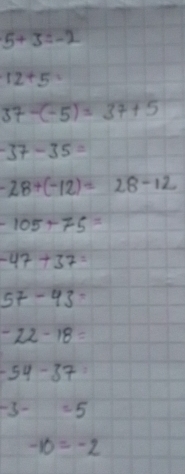 -5+3=-2
-12+5=
37-(-5)= 37+5
-37-35=
-28+(-12)= 28-12
-105+75=
-47+37=
57-43=
-22-18=
-54-37=
-3- =5
-10=-2